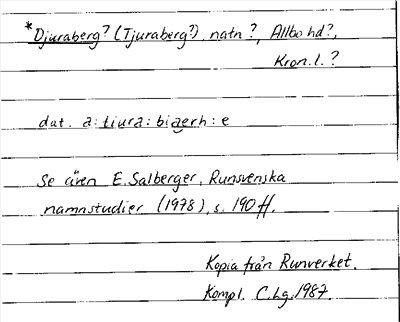 *Djuraberg? (Tjuraberg?) natn?, Allbo hd?,
Kron. l.?
dat. a:tiura:biaerh:e
Se även E. Salberger, Runsvenska
namnstudier (1978), s. 190 ff.
Kopia från Runverket.
Kompl. C.Lg. 1987.